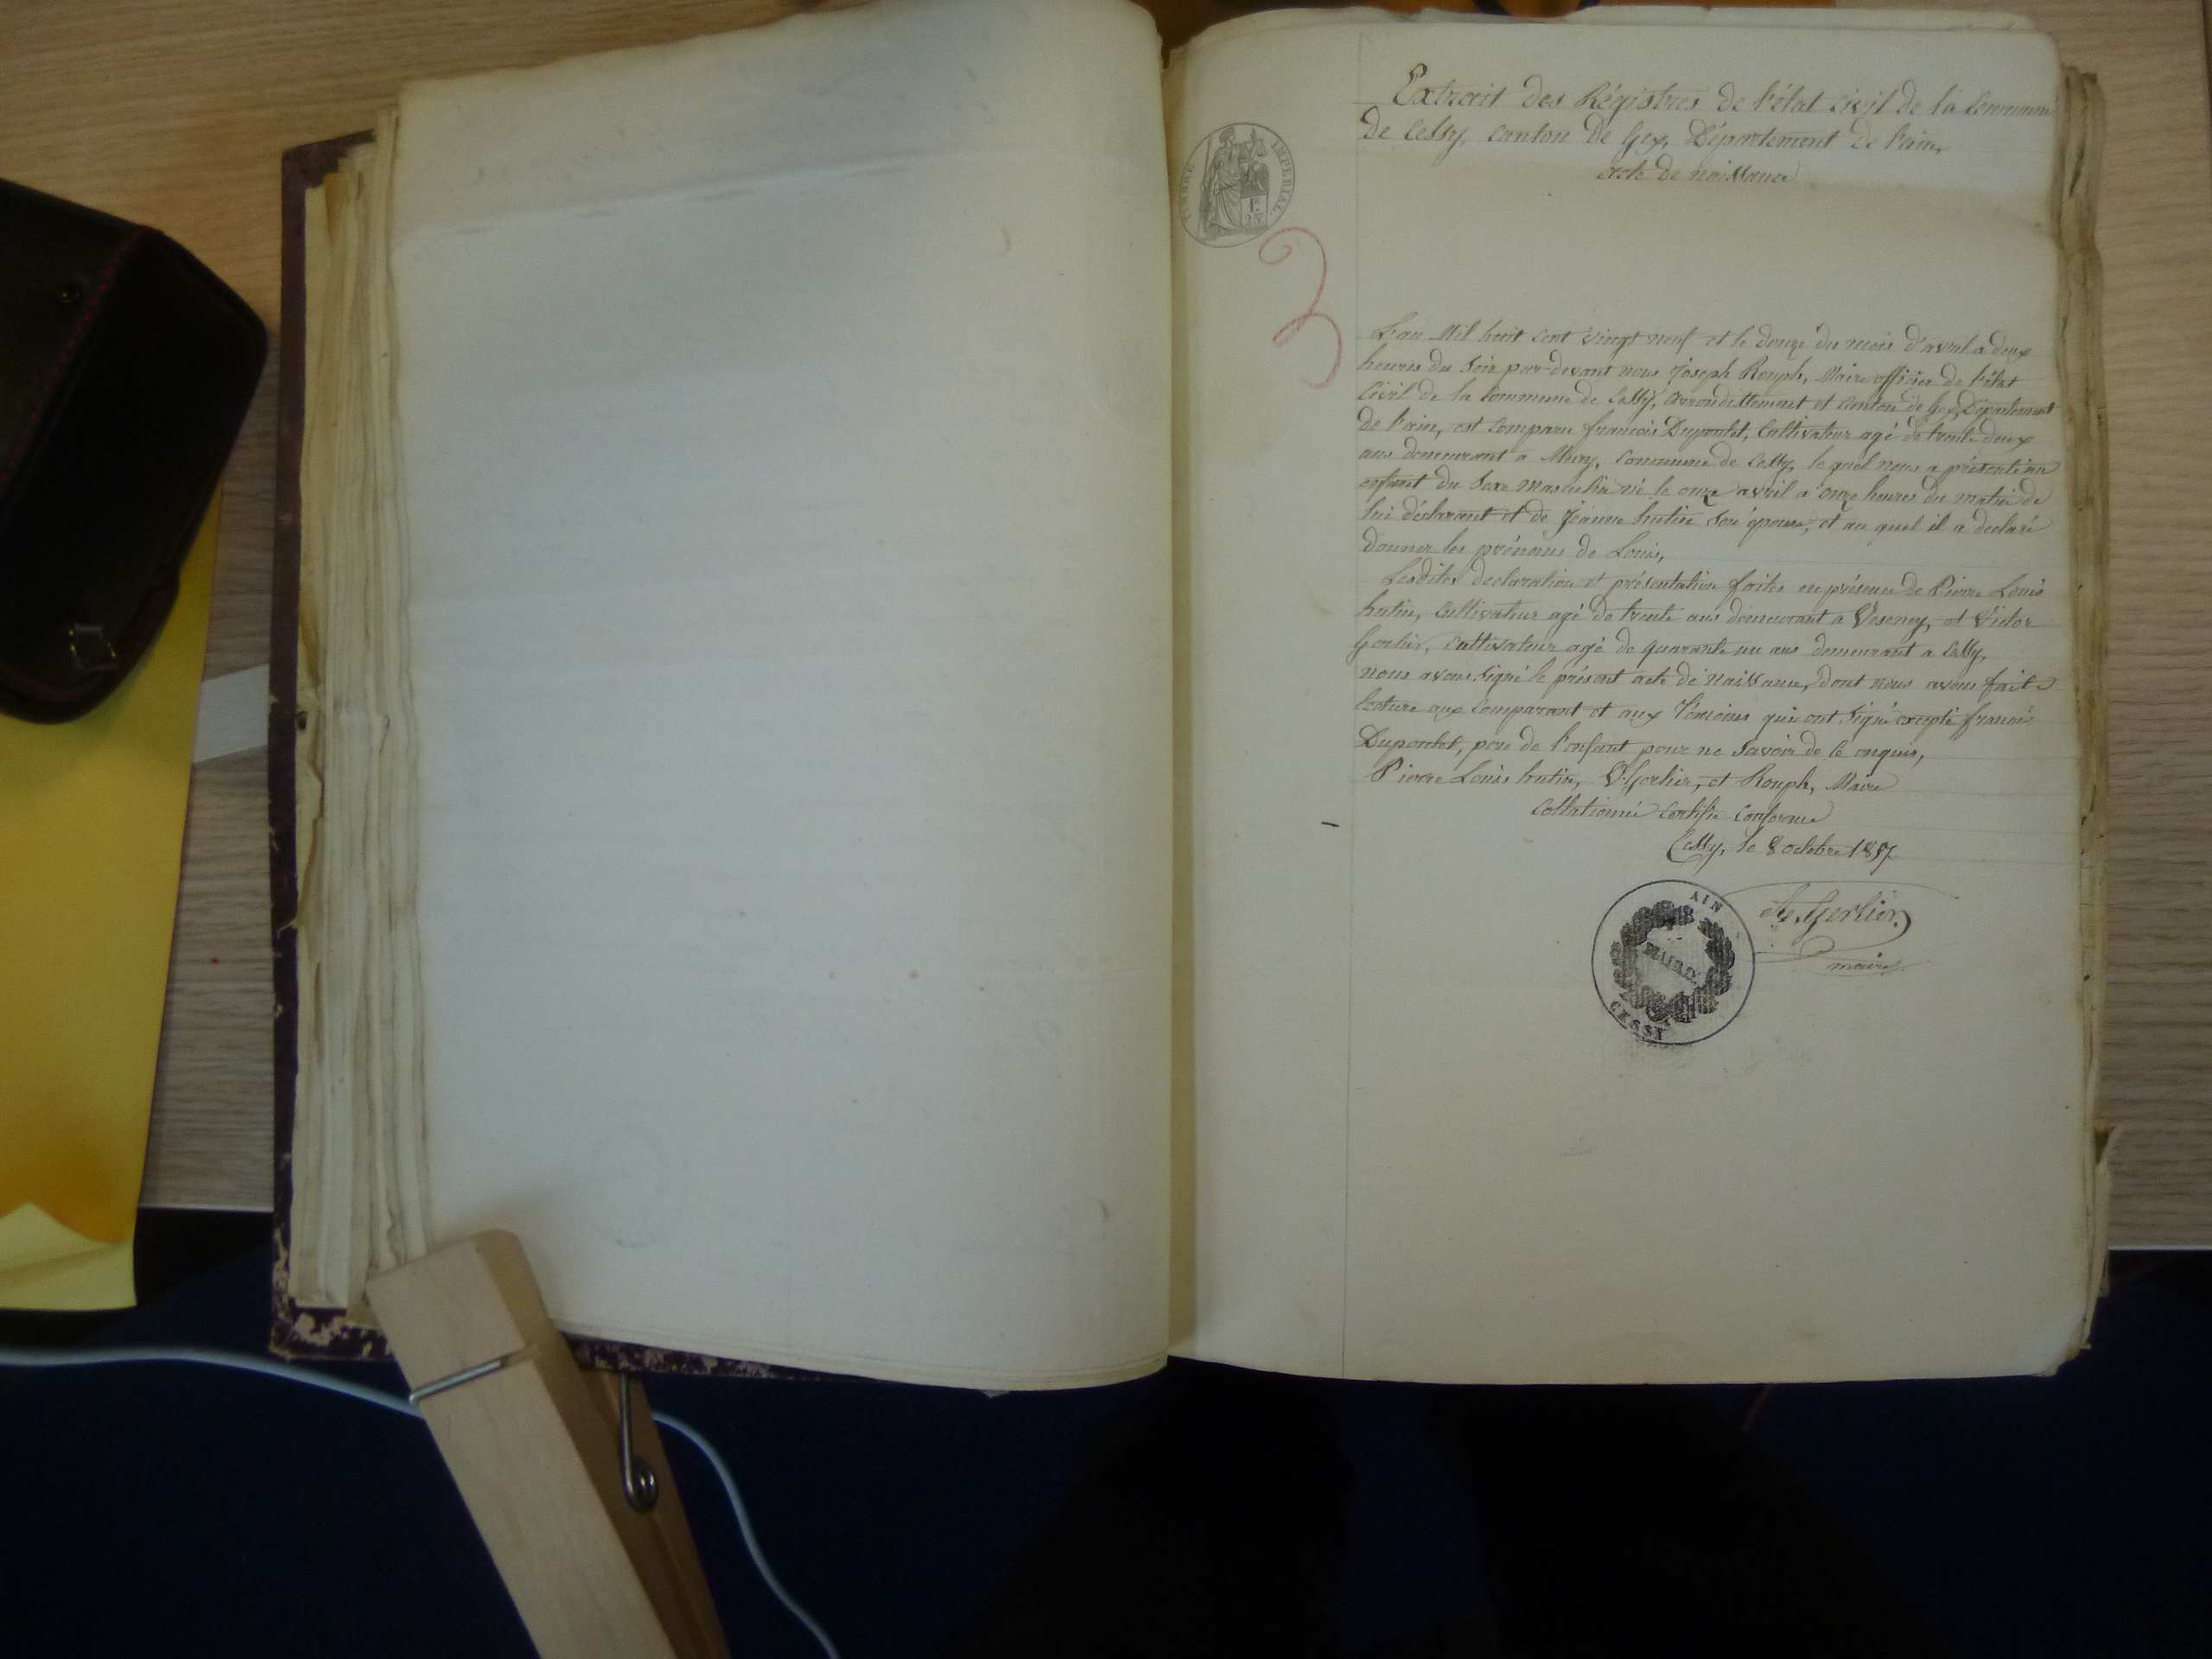 Extrait des Régistres de l'état civil de la Commune
de Cessy, canton de Gex, Département de l'ain,
acte de naissance
TIMBRE IMPERIAL
1F.
25
3
L'an Mil huit cent vingt neuf et le douze du mois d'avril a deux
heures du soir par-devant nous Joseph Rouph, Maire officier de l'état
Civil de la Commune de Cessy, arrondissement et Canton de Gex, Département
de l'ain, est Comparu francois Dupontet, Cultivateur agé de trente deux
ans demeurant a Mury, Commune de Cessy, le quel nous a présenté un
enfant du Sexe masculin né le onze avril a onze heures du matin de
lui déclarant et de Jeanne hutin son épouse, et au quel il a declaré
donner les prénoms de Louis,
Lesdites declaration et présentation faites en présence de Pierre Louis
hutin, Cultivateur agé de trente ans demeurant a Vesency, et Victor
Gerlier, Cultivateur agé de quarante un ans demeurant a Cessy,
nous avons signé le présent acte de naissance, dont nous avons fait
lecture aux Comparant et aux Témoins qui ont signé excepté francois
Dupontet, pere de l'enfant pour ne savoir de ce enquis,
Pierre Louis hutin, V. Gerlier, et Rouph, Maire
Collationné Certifié Conforme
Cessy, le 8 octobre 1857
Gerlier
maire
AIN
MAIRIE
CESSY